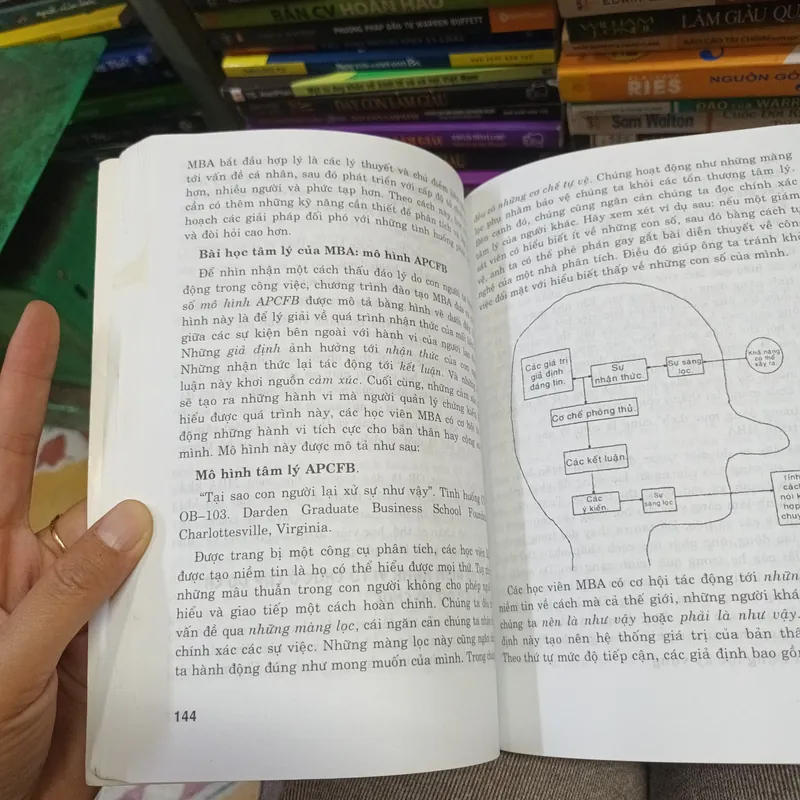 BẢN CV HOÀN HẢO
PHƯƠNG PHÁP ĐẦU TƯ WARREN BUFFETT
DẠY CON LÀM GIÀU
LÀM GIÀU
WILLIAM
LÀM GIÀU QU
RIES
NGUỒN GỐ
Sam Walton
MBA bắt đầu hợp lý là các lý thuyết và chủ điểm
tới vấn đề cá nhân, sau đó phát triển với cấp độ
hơn, nhiều người và phức tạp hơn. Theo cách này,
cần có thêm những kỹ năng cần thiết để phân tích và
hoạch các giải pháp đối phó với những tình huống
và đòi hỏi cao hơn.
Bài học tâm lý của MBA: mô hình APCFB
Để nhìn nhận một cách thấu đáo lý do con người
động trong công việc, chương trình đào tạo MBA
số mô hình APCFB được mô tả bằng hình vẽ dưới đây
hình này là để lý giải về quá trình nhận thức của
giữa các sự kiện bên ngoài với hành vi của người
Những giả định ảnh hưởng tới nhận thức của con
Những nhận thức lại tác động tới kết luận. Và những
luận này khơi nguồn cảm xúc. Cuối cùng, những cảm
sẽ tạo ra những hành vi mà người quản lý chứng kiến
hiểu được quá trình này, các học viên MBA có cơ hội
động những hành vi tích cực cho bản thân hay cộng
mình. Mô hình này được mô tả như sau:
Mô hình tâm lý APCFB.
“Tại sao con người lại xử sự như vậy”. Tình huống
OB–103. Darden Graduate Business School
Charlottesville, Virginia.
Được trang bị một công cụ phân tích, các học viên
được tạo niềm tin là họ có thể hiểu được mọi thứ. Tuy
những mâu thuẫn trong con người không cho phép
hiểu và giao tiếp một cách hoàn chỉnh. Chúng ta đều
vấn đề qua những màng lọc, cái ngăn cản chúng ta
chính xác các sự việc. Những màng lọc này cũng ngăn
ta hành động đúng như mong muốn của mình. Trong
144
đều có những cơ chế tự vệ. Chúng hoạt động như những màng
lọc phụ nhằm bảo vệ chúng ta khỏi các tổn thương tâm lý.
Bên cạnh đó, chúng cũng ngăn cản chúng ta đọc chính xác
tâm lý của người khác. Hãy xem xét ví dụ sau: nếu một giám
sát viên có hiểu biết ít về những con số, sau đó bằng cách tự
vệ, anh ta có thể phê phán gay gắt bài diễn thuyết về công
nghệ của một nhà phân tích. Điều đó giúp ông ta tránh khỏi
việc đối mặt với hiểu biết thấp về những con số của mình.
Các giá trị
giả định
đáng tin.
Sự
nhận thức.
Sự sàng
lọc.
Khả năng
có thể
xảy ra.
Cơ chế phòng thủ.
Các kết luận.
Các
ý kiến.
Sự
sàng lọc
Tính
cách
nói
hợp
chuy
Các học viên MBA có cơ hội tác động tới những
niềm tin về cách mà cả thế giới, những người khác
chúng ta nên là như vậy hoặc phải là như vậy.
định này tạo nên hệ thống giá trị của bản thâ
Theo thứ tự mức độ tiếp cận, các giả định bao gồm